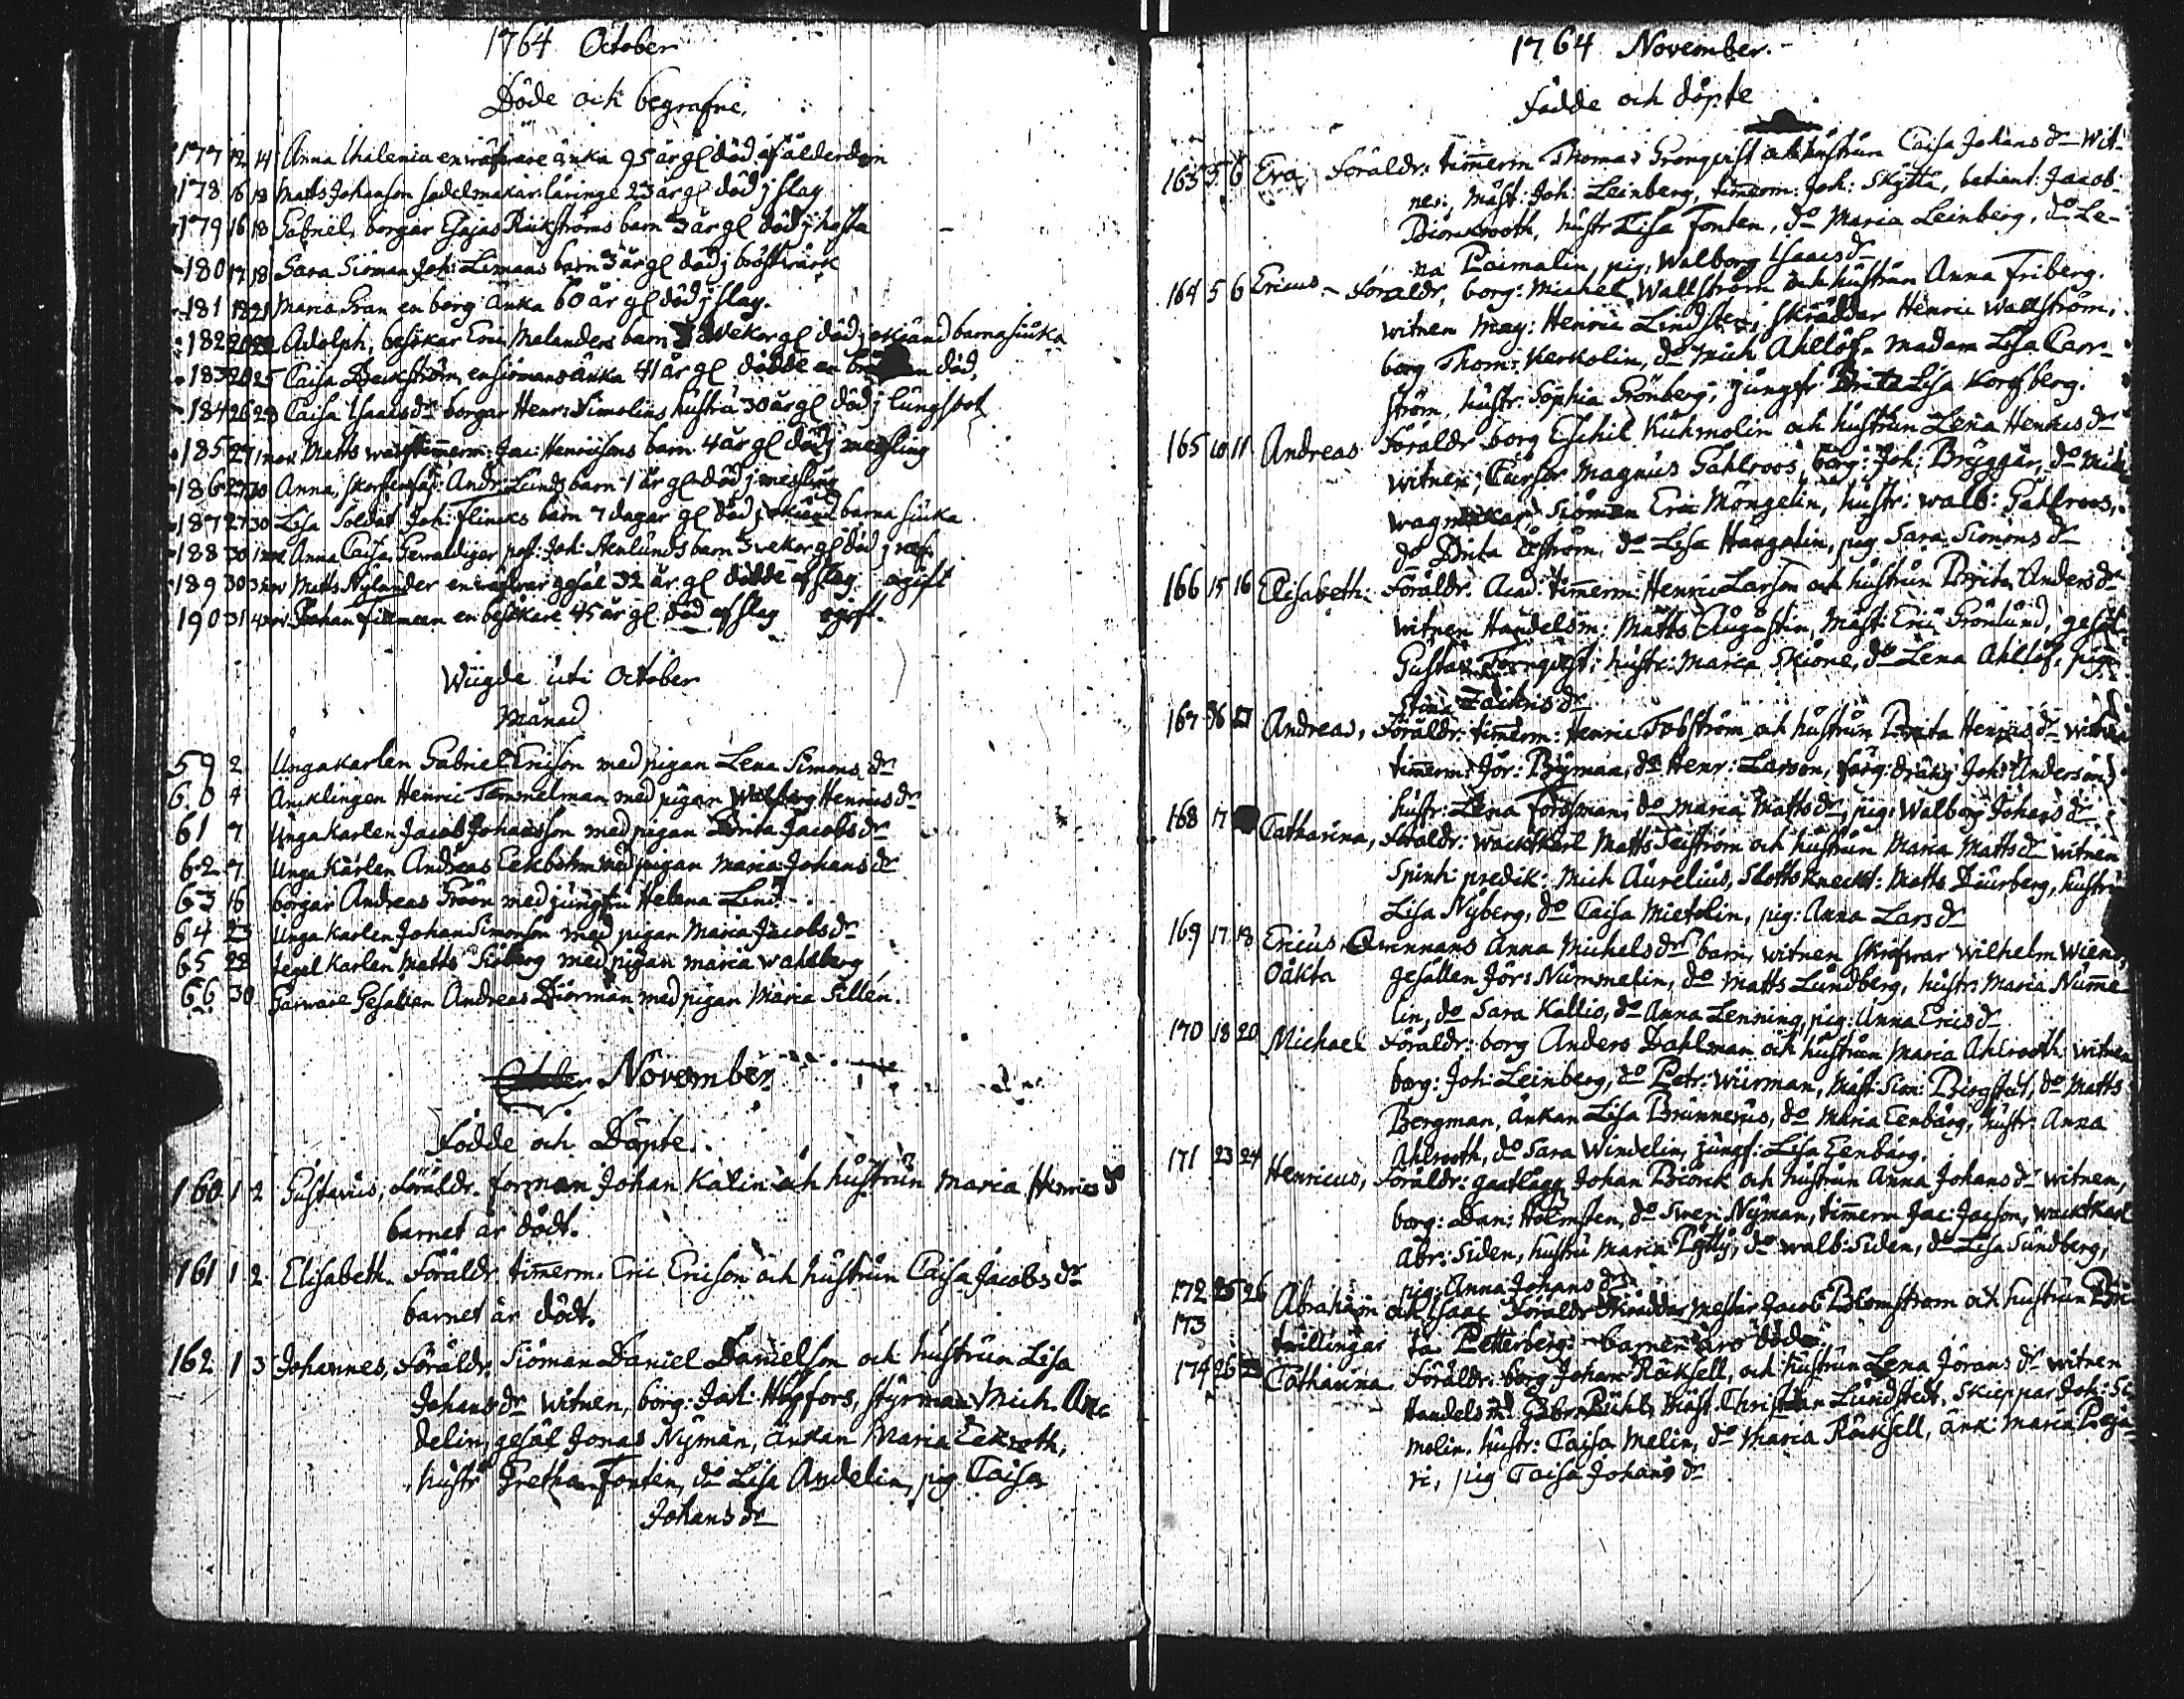 1764 October
Döde och begrafne.
177 12 14 Anna Thalenia en änka 95 år gl död af ålderdom
178 16 18 Matts Johanson sadelmakar läringe 23 år gl död j slag
179 16 18 Gabriel, borgar Esajas Rückströms barn 3 år gl död j hasta
180 17 18 Sara Sioman Joh: Limans barn 3 år gl död j bröstwärk
181 18 21 Maria Gran en borg: änka 60 år gl död j slag.
182 20 22 Adolph, besökar Eric Melanders barn 3 wekor gl död j okiänd barnasiuka
183 20 25 Caisa Beckström, en siömans änka 41 år gl dödde en död,
184 26 28 Caisa Isaacs dr borgar Henr: Simolins hustru 30 år gl död j lungsot
185 27 1 nov Matts timmerm: Jac: Henricsons barn 4 år gl död j messling
186 27 30 Anna, Andr: Lunds barn 1 år gl död j messling
187 27 30 Lisa Soldat Joh: Flincks barn 7 dagar gl död j okiänd barna siuka
188 30 1 nov Anna Caisa, Gewaldiger Joh: Stenlunds barn 3 wekor gl död j
189 30 3 nov Matts Nylander en gesäl 32 år gl dödde af slag ogift
190 31 4 nov Johan Filman en besökare 45 år gl. död af slag ogift.
Wiigde uti October
Månad
59 2 Ungakarlen Gabriel Ericson med pigan Lena Simons dr
60 4 Änklingen Henric Tammelman med pigan Walborg Henrics dr
61 7 Ungakarlen Jacob Johansson med pigan Brita Jacobs dr
62 7 Ungakarlen Andreas Eekbohm med pigan Maria Johans dr
63 16 borgar Andreas Gröön med jungfru Helena Lind.
64 23 Ungakarlen Johan Simonson med pigan Maria Jacobs dr
65 28 tegelkarlen Matts Siöberg med pigan Maria Wahlberg
66 30 Garware Gesällen Andreas Biörman med pigan Maria Sillén.
October November
Födde och Döpte.
160 1 2 Gustavus, Föräldr. forman Johan Kalin och hustrun Maria Henrics dr
barnet är dödt.
161 1 2 Elisabeth. Föräldr timmerm. Eric Ericson och hustrun Caisa Jacobs dr
barnet är dödt.
162 1 3 Johannes, Föräldr. Siöman Daniel Danielson och hustrun Lisa
Johans dr witnen, borg: Joh: Högfors, styrman Mich. An
delin, gesäl Jonas Nyman, änkan Maria Eekroth,
hustr Gretha Fonten, do Lisa Andelin, pig Caisa
Johans dr
1764 November.
Födde och döpte
163 5 6 Eva, Föräldr: timmerm Thomas Grönqvist och hustrun Caisa Johans dr Wit-
nen: Mäst: Joh: Leinberg, timmerm: Joh: Skytta, betiant: Jacob
Biorkrooth, hustr Lisa Fonten, do Maria Leinberg, do Le-
na Poimalin, pig: Walborg Isaacs dr
164 5 6 Ericus - Föräldr, borg: Michel Wallström och hustrun Anna Friberg.
witnen Mag: Henric Lindsten, skräddar Henric Wallström,
borg Thom: Kerkolin, do Mich Ahllöf. Madam Lisa Carr-
ström, hustr: Sophia Grönberg, jungfr Brita Lisa Korsberg.
165 10 11 Andreas Föräldr borg Eschil Kuhmolin och hustrun Lena Henrics dr
witnen; Cursor Magnus Gahlroos, borg: Joh: Bryggar, do Mich
wagnmakar, Siöman Eric Möngelin, hustr: Walb: Gahlroos,
do Brita Öström, do Lisa Haugalin, pig Sara Simons dr
166 15 16 Elisabeth. Föräldr. Acad: timmerm: Henric Larson och hustrun Brita Anders dr
witnen Handelsm: Matts Augustin, Mäst: Eric Grönlund, gesäl
Gustav Törnqvist; hustr: Maria Skiöne, do Lena Ahllöf, pig:
Stina Zachris dr
167 16 17 Andreas, Föräldr: timmerm: Henric Tobström och hustrun Brita Henrics dr witnen
timmerm: Jör: Byman, do Henr: Larson, färg: dräng Joh: Anderson
hustr: Lena Forssman, do Maria Matts dr, pig: Walborg Johans dr
168 17 Catharina, Föräldr: wacktkarl Matts Teiström och hustrun Maria Matts dr witnen
Spinh: predik: Mich Aurelius, Slottsknecht: Matts Diurberg, hustru
Lisa Nyberg, do Caisa Mietolin, pig: Anna Lars dr
169 17 18 Ericus Qwinnans Anna Michels dr barn, witnen skrifwar Wilhelm Wiens,
Oäkta gesällen Jörs Nummelin, do Matts Lundberg, hustr: Maria Numme-
lin, do Sara Kallio, do Anna Lenning, pig: Anna Erics dr
170 18 20 Michael Föräldr: borg Anders Dahlman och hustrun Maria Ahlrooth witnen
borg: Joh: Leinberg, do Petr: Wiirman, Mäst: Sim: Bergstedt, do Matts
Bergman, änkan Lisa Brunnerus, do Maria Eenbärg, hustr: Anna
Ahlrooth, do Sara Windelin, jungf: Lisa Eenbärg.
171 23 24 Henricus, Föräldr: gaatlägg Johan Biorck och hustrun Anna Johans dr witnen,
borg: Dan: Holmsten, do Swen Nyman, timmerm Jac: Jacson, wacktkarl
Abr: Siden, hustru Maria Pytty, do Walb: Siden, do Lisa Sundberg,
pig: Anna Johans dr
172 25 26 Abraham och Isaac Föräldr Skräddar mestar Jacob Blomström och hustrun Bri-
173 twillingar ta Petterberg: barnen äro döde
174 26 Catharina. Föräldr: borg Johan Röcksell, och hustrun Lena Jörans dr witnen
Handelsm: Gabr: Bühl, Mäst. Christian Lundstedt, Skieppar Joh: Si
molin. hustr: Caisa Melin, do Maria Röcksell, änk: Maria Peja
ri, pig Caisa Johans dr